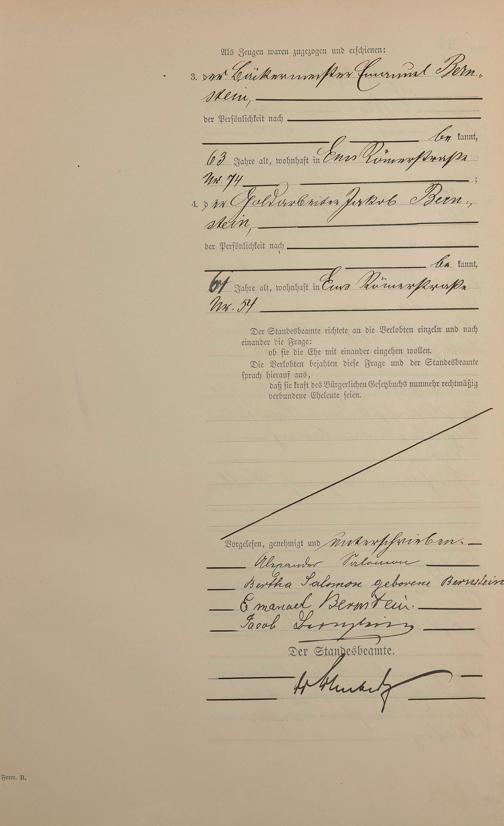 Als Zeugen waren zugezogen und erschienen:
3. der Bäckermeister Emanuel Bern-
stein,
der Persönlichkeit nach
be kannt,
63 Jahre alt, wohnhaft in Ems Römerstraße
Nr. 74 ;
4. der Goldarbeiter Jakob Bern-
stein,
der Persönlichkeit nach
be kannt,
61 Jahre alt, wohnhaft in Ems Römerstraße
Nr. 54
Der Standesbeamte richtete an die Verlobten einzeln und nach
einander die Frage:
ob sie die Ehe mit einander eingehen wollen.
Die Verlobten bejahten diese Frage und der Standesbeamte
sprach hierauf aus,
daß sie kraft des Bürgerlichen Gesetzbuchs nunmehr rechtmäßig
verbundene Eheleute seien.
Vorgelesen, genehmigt und unterschrieben.
Alexander Salomon
Bertha Salomon geborene Bernstein
Emanuel Bernstein.
Jacob Bernstein
Der Standesbeamte.
Form. B.